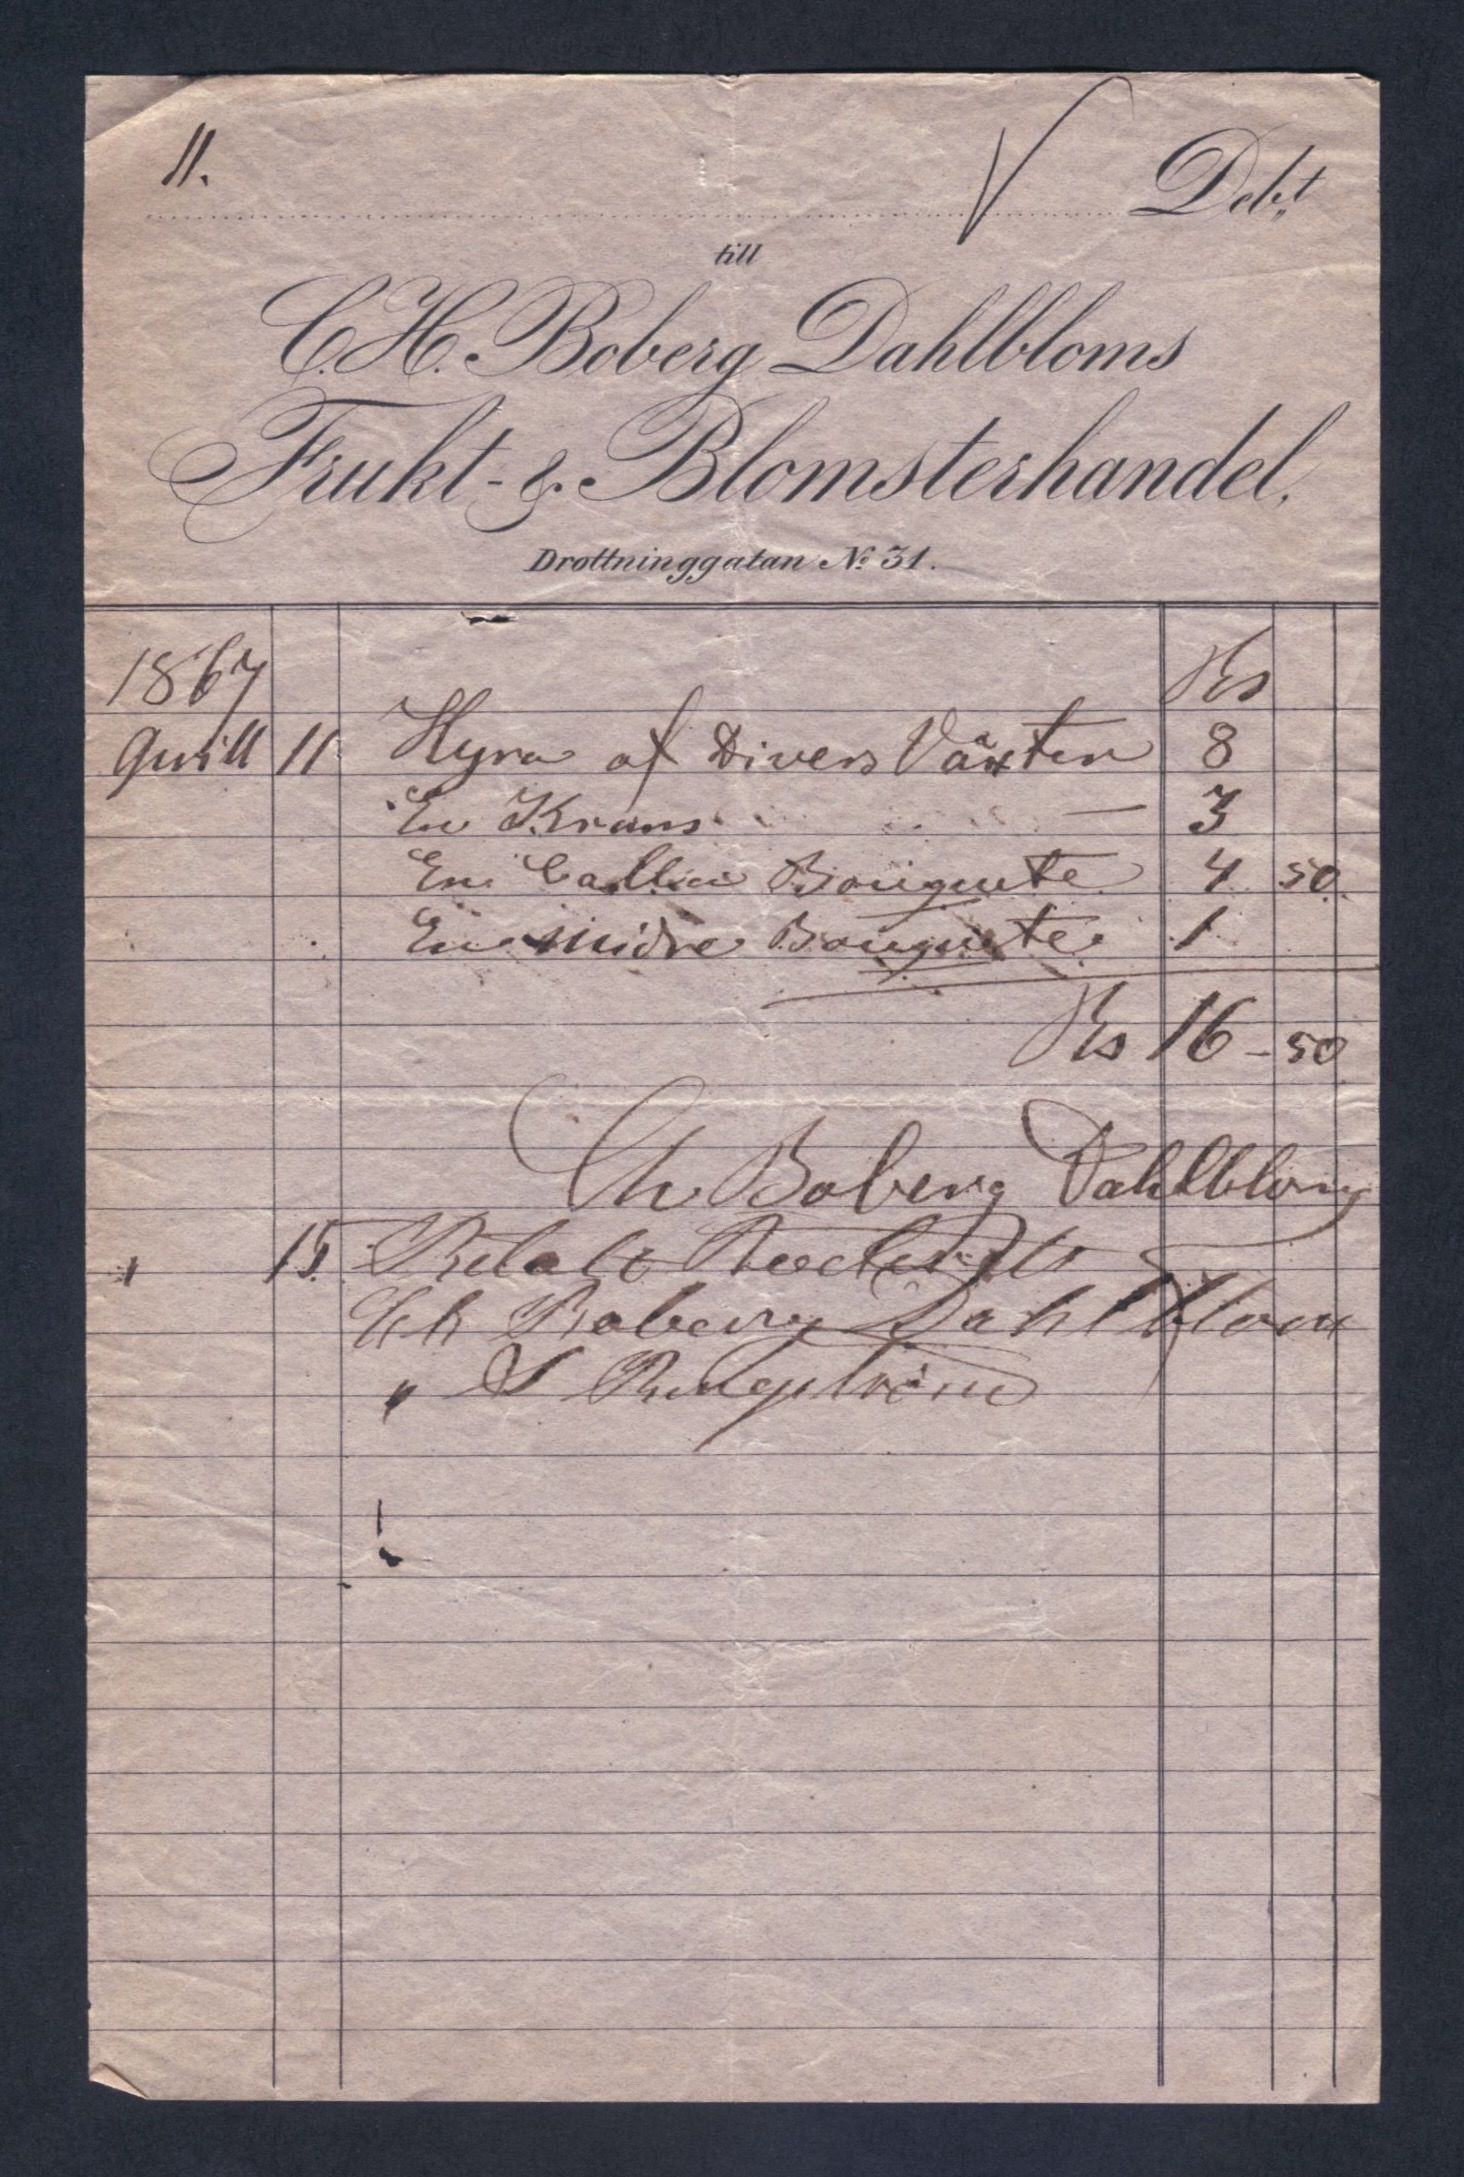 11. Debt
till
C.H. Boberg Dahlbloms
Frukt- & Blomsterhandel,
Drottninggatan No 31.
1867 Rs
Aprill 11 Hyra af Divers Växter 8
En Krans — 3
En Calla Bouquete 4 50
En midre Bouquete 1
Rs 16 - 50
Ch Boberg Dahlblom
" 15
Ch Boberg Dahlblom
"